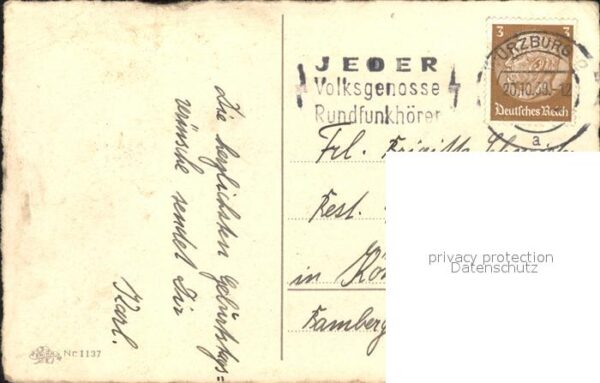 Die herzlichsten Geburtstags=
wünsche sendet Dir
Karl.
Nr 1137
JEDER
Volksgenosse
Rundfunkhörer
ÜRZBURG
20.10.40.-12
a
3 3
Deutsches Reich
Frl. Brigitte
Rest.
in
Bamberg
privacy protection
Datenschutz